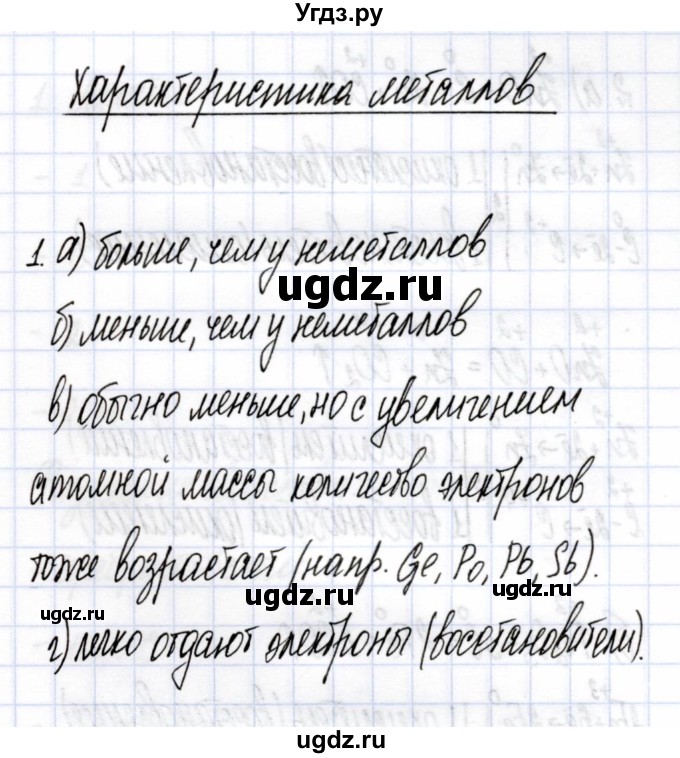 Угдз.ру
Характеристика металлов
1. а) больше, чем у неметаллов
ugdz.ru
б) меньше, чем у неметаллов
в) обычно меньше, но с увеличением
атомной массы количество электронов
тоже возрастает (напр. Ge, Po, Pb, Sb).
ugdz.ru
ugdz.ru
ugdz.ru
г) легко отдают электроны (восстановители).
ugdz.ru